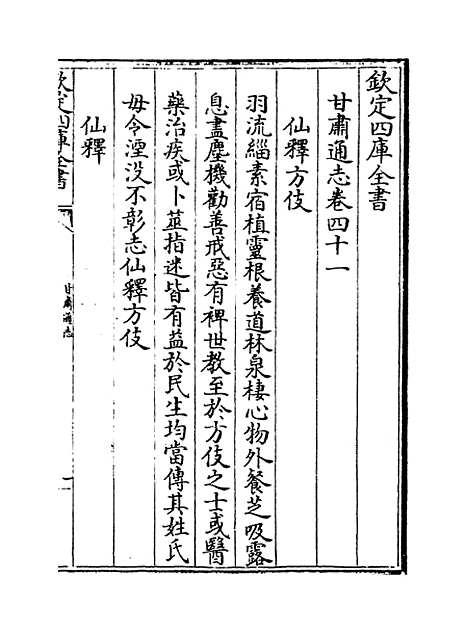 欽定四庫全書
甘肅通志卷四十一
仙釋方伎
羽流緇素宿植靈根養道林泉棲心物外餐芝吸露
息盡塵機勸善戒惡有裨世教至於方伎之士或醫
藥治疾或卜筮指迷皆有益於民生均當傳其姓氏
毋令湮没不彰志仙釋方伎
仙釋
欽定四庫全書
甘肅通志
一